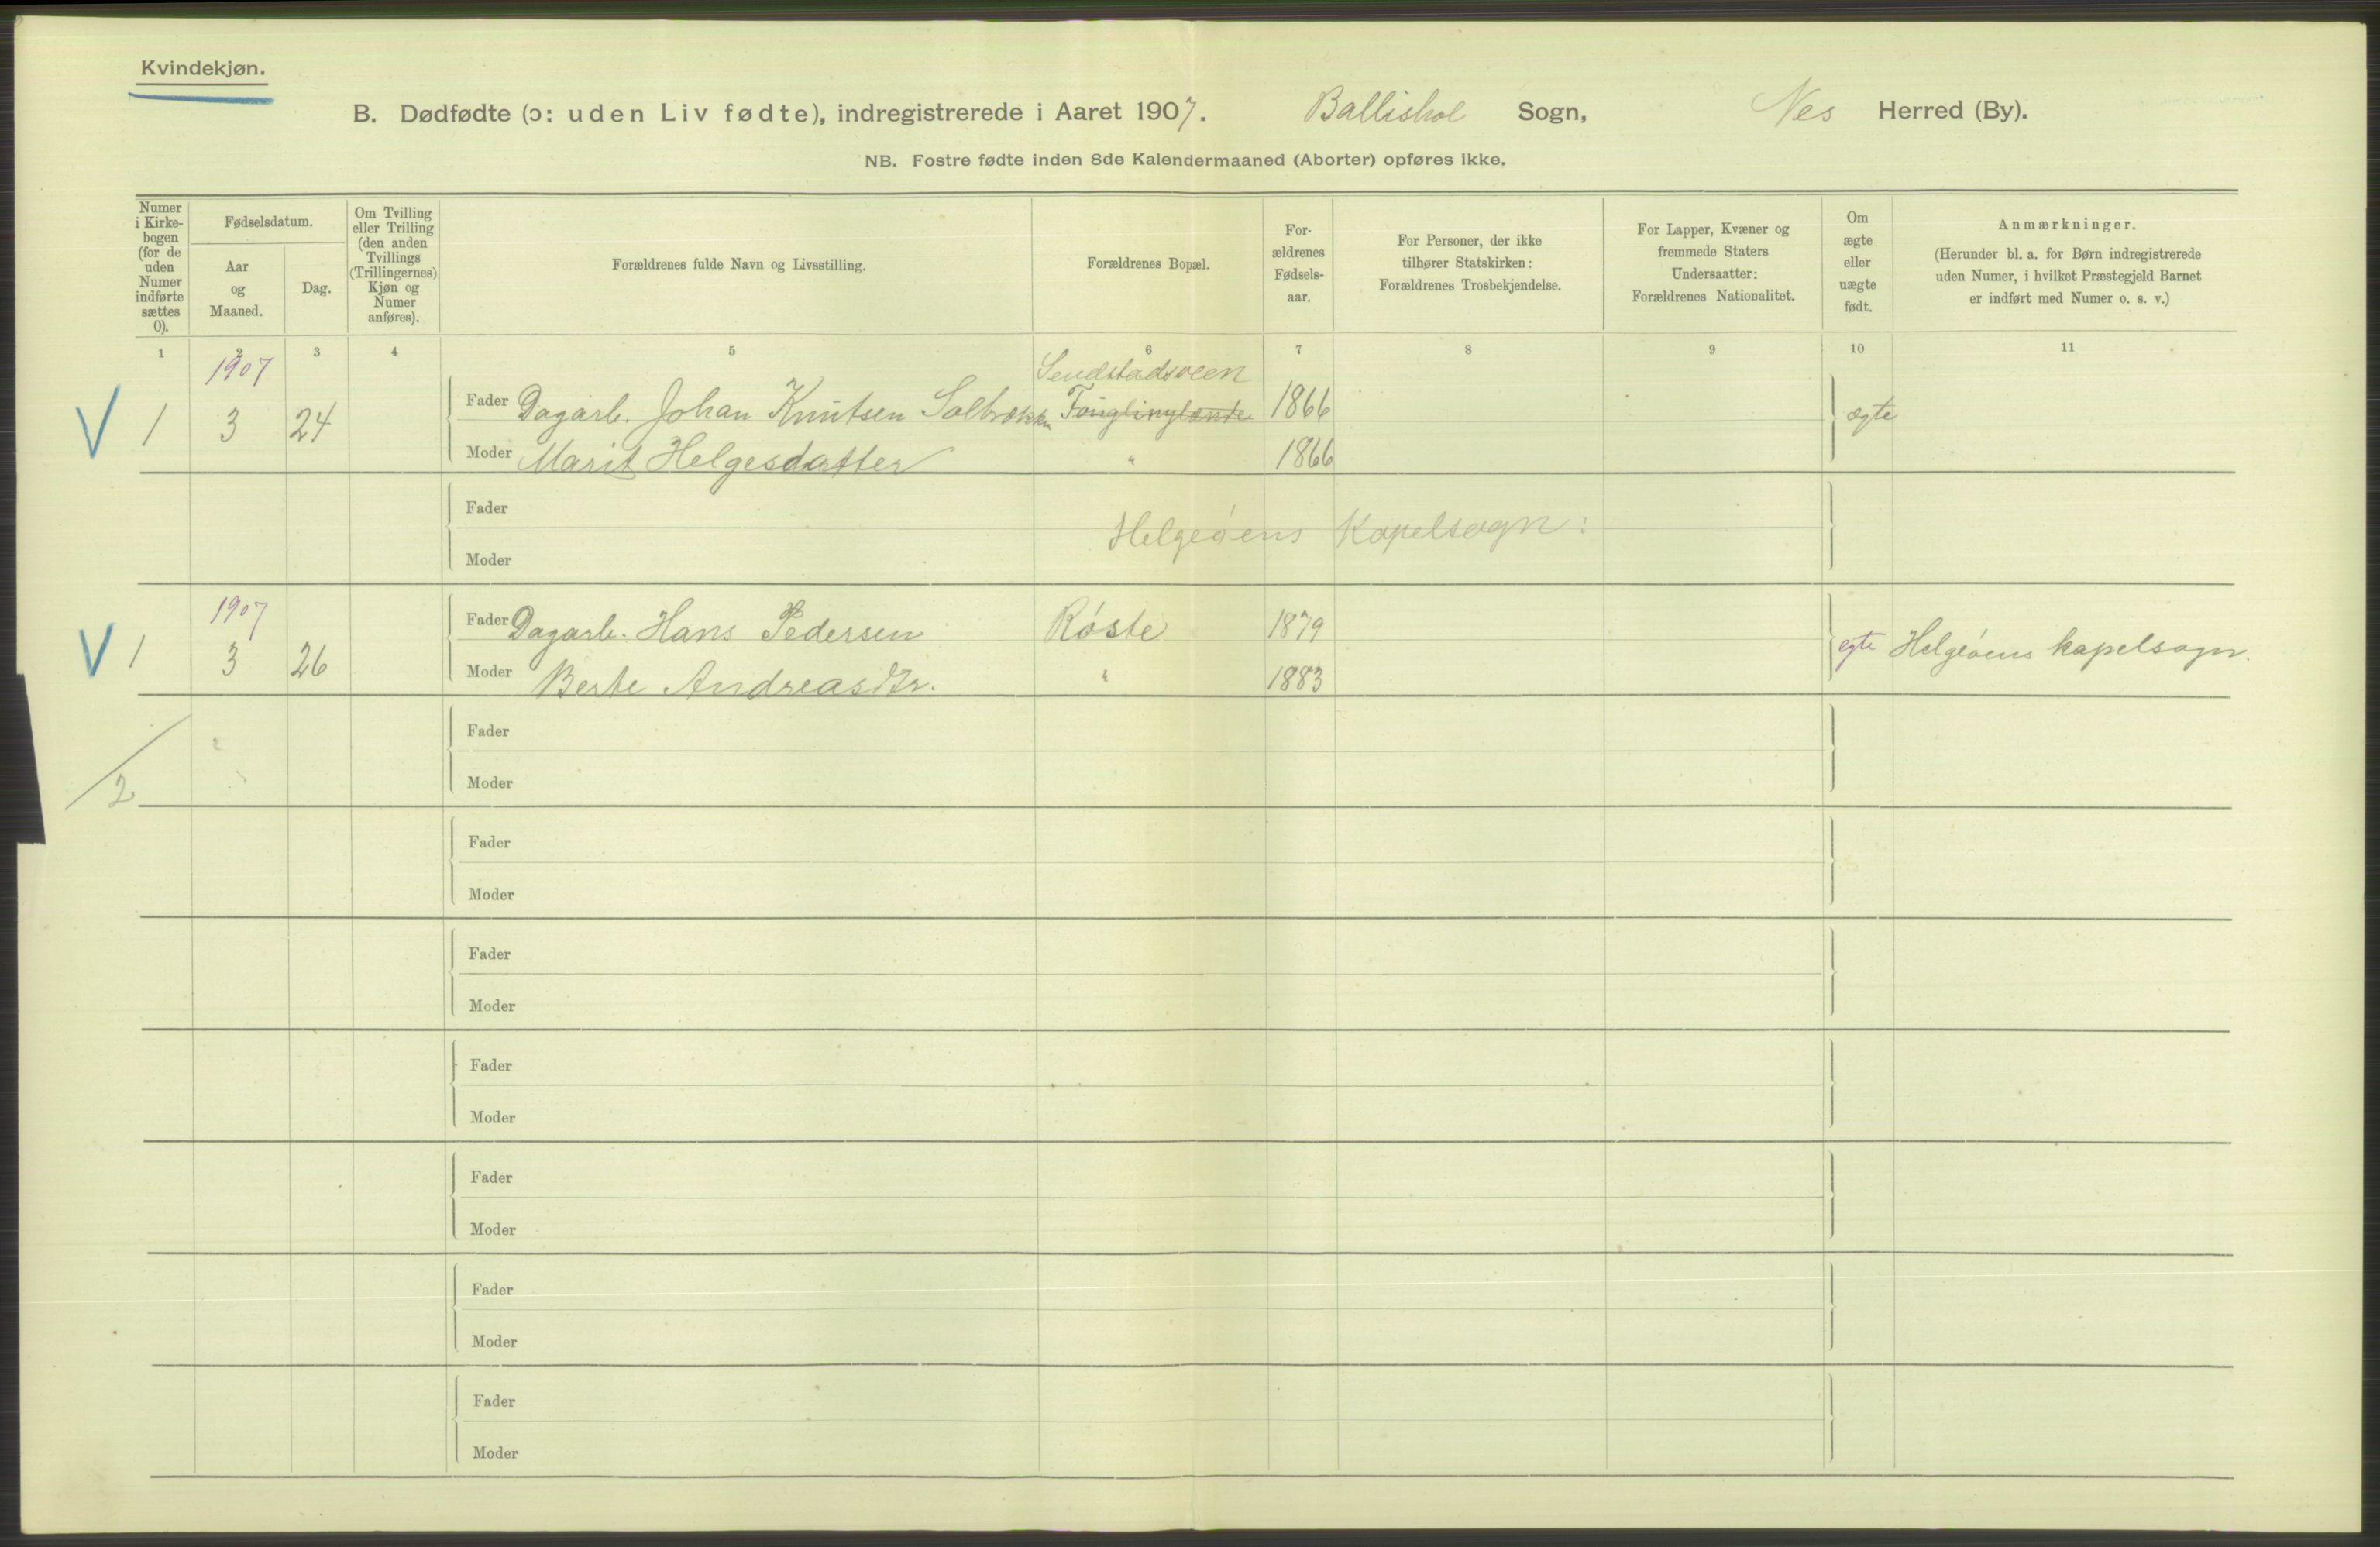 Kvindekjøn.
B. Dødfødte (ɔ: uden Liv fødte), indregistrerede i Aaret 1907. Ballishol Sogn, Nes Herred (By).
NB. Fostre fødte inden 8de Kalendermaaned (Aborter) opføres ikke.
Numer i Kirke-bogen (for de uden Numer indførte sættes 0).
Fødselsdatum.
Aar og Maaned.
Dag.
Om Tvilling eller Trilling (den anden Tvillings (Trillingernes) Kjøn og Numer anføres).
Forældrenes fulde Navn og Livsstilling.
Forældrenes Bopæl.
For-ældrenes Fødsels-aar.
For Personer, der ikke tilhører Statskirken: Forældrenes Trosbekjendelse.
For Lapper, Kvæner og fremmede Staters Undersaatter: Forældrenes Nationalitet.
Om ægte eller uægte født.
Anmærkninger.
(Herunder bl. a. for Børn indregistrerede uden Numer, i hvilket Præstegjeld Barnet er indført med Numer o. s. v.)
1 2 3 4 5 6 7 8 9 10 11
1907 Sendstadsveen
V 1 3 24 Fader Dagarb. Johan Knutsen Solbrækken 1866 ægte
Moder Marit Helgesdatter " 1866
Fader
Helgeøens Kapelsogn:
Moder
1907
V 1 3 26 Fader Dagarb. Hans Pedersen Røste 1879 egte Helgeøens kapelsogn.
Moder Berte Andreasdtr. " 1883
Fader
2 Moder
Fader
Moder
Fader
Moder
Fader
Moder
Fader
Moder
Fader
Moder
Fader
Moder